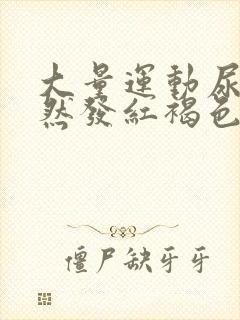 大量運動尿
然發紅褐色
僵尸缺牙牙